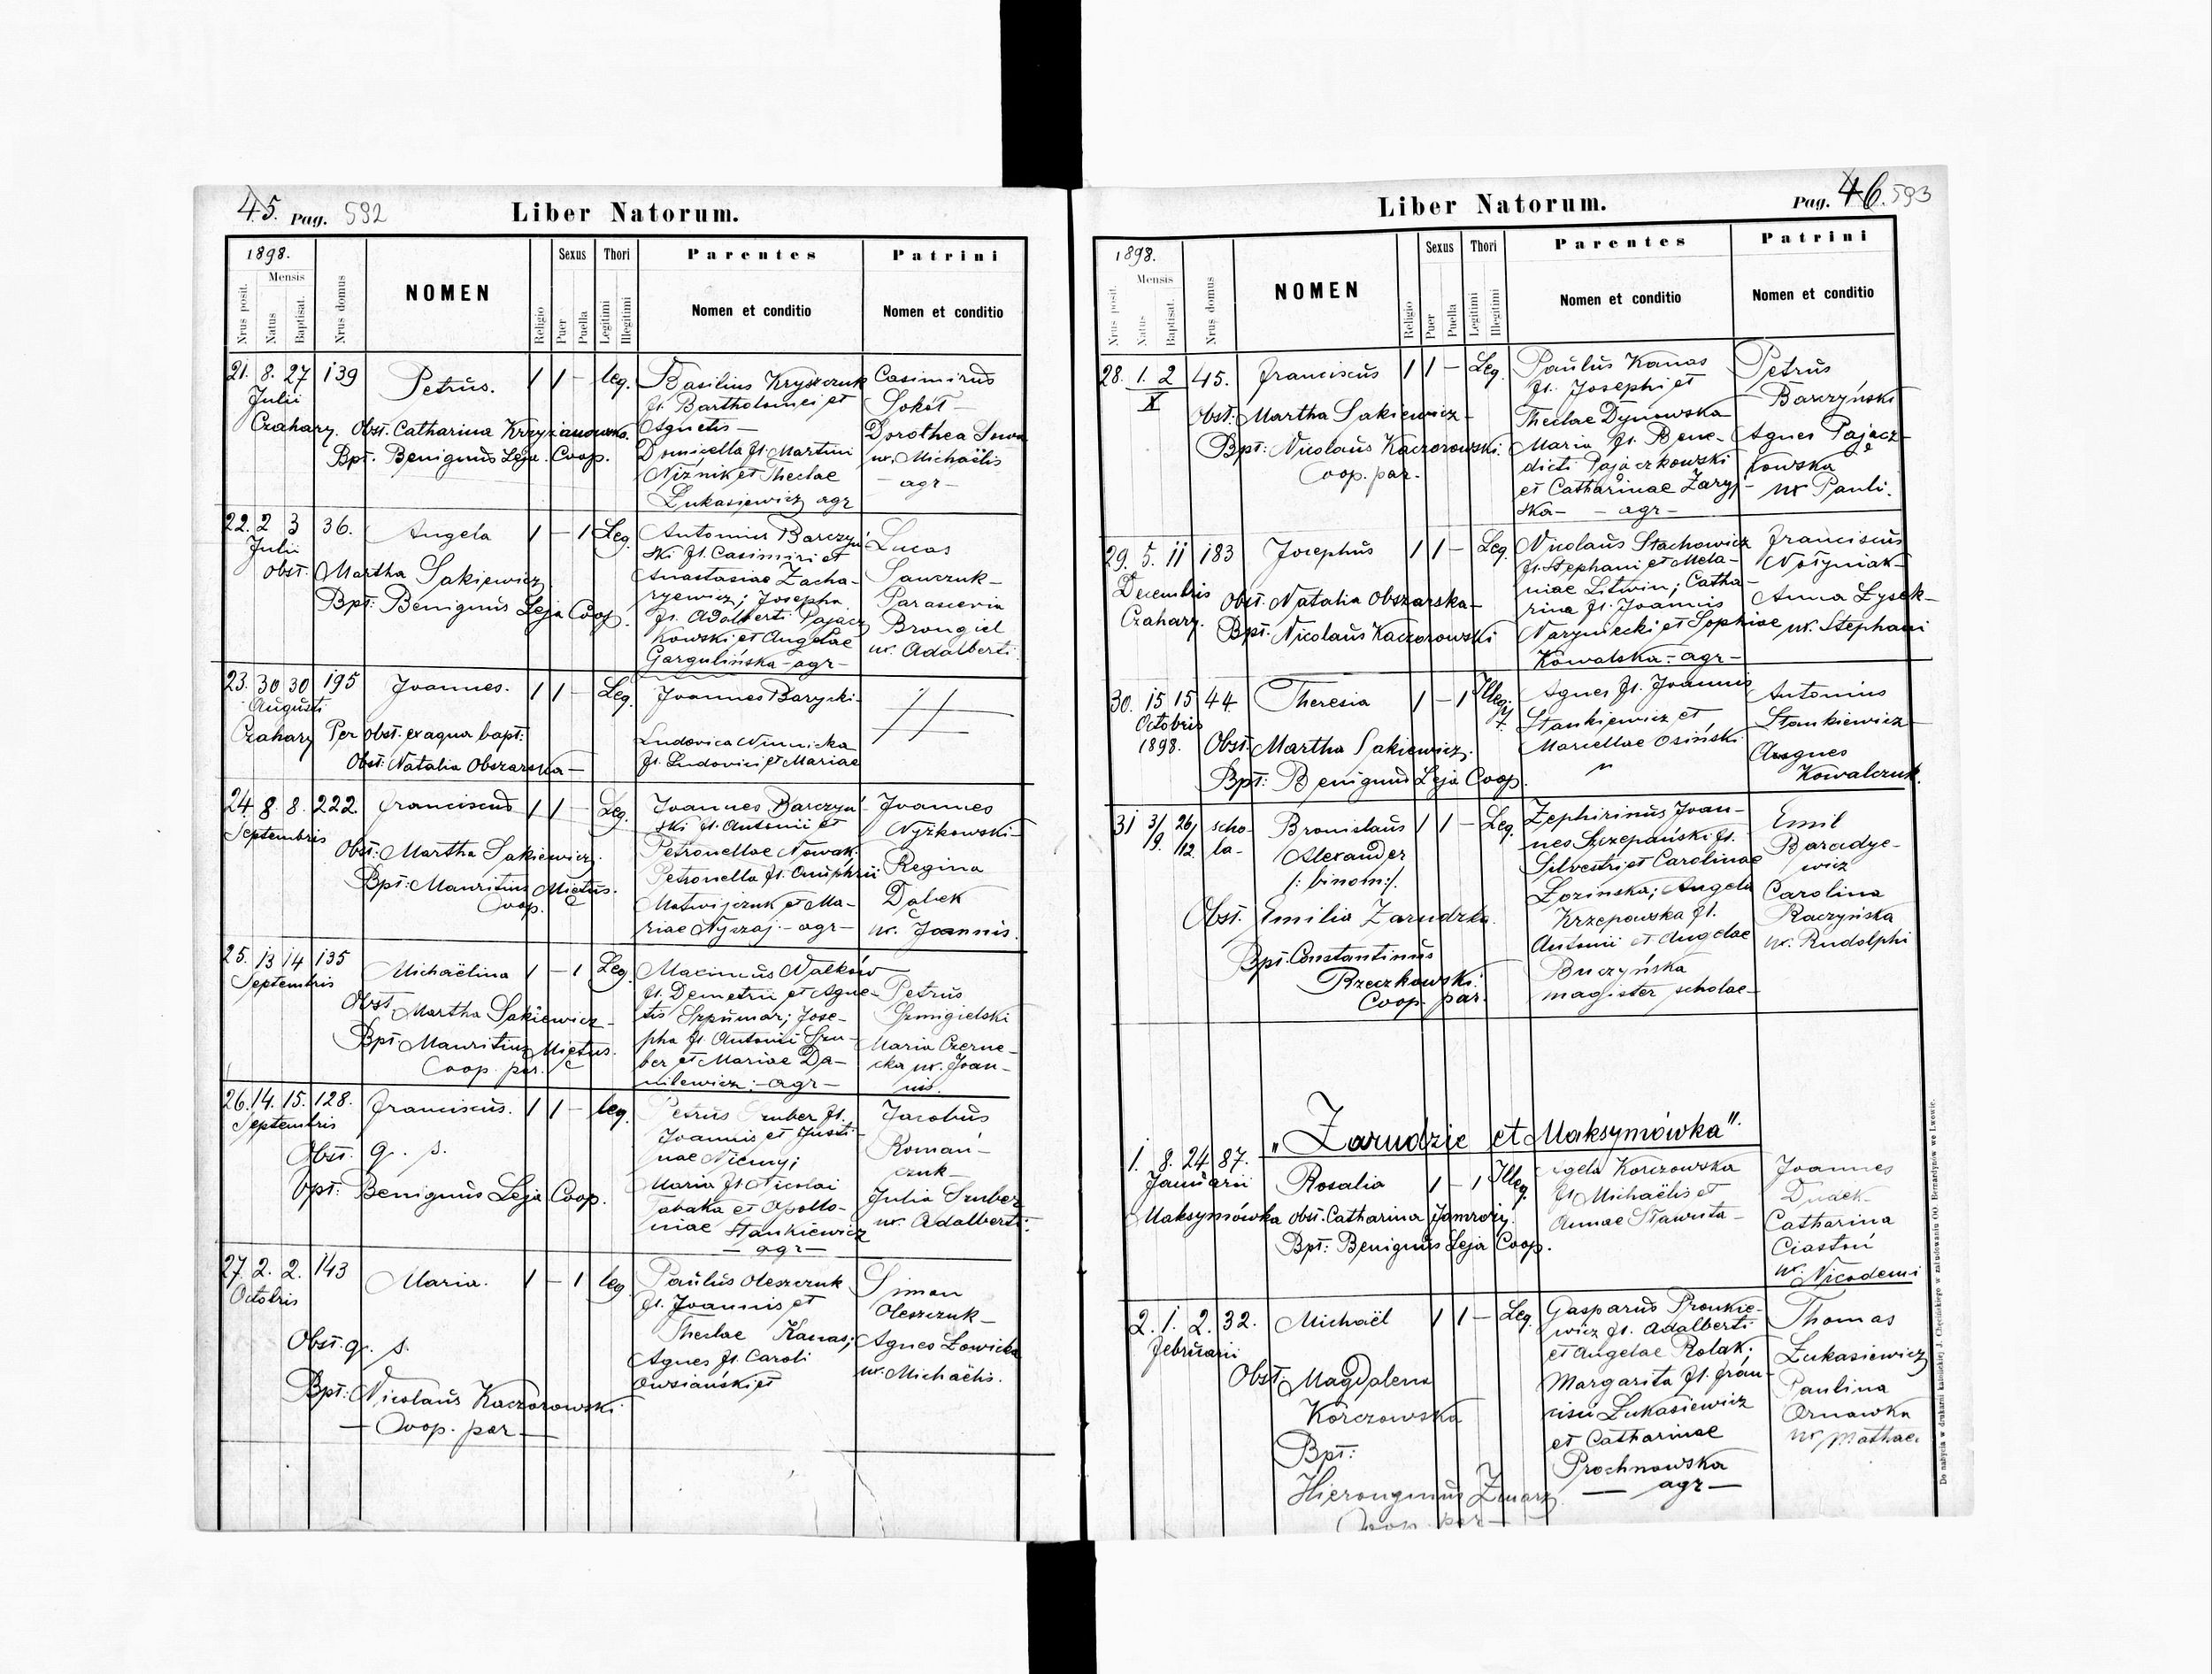 45. Pag. 592
Liber Natorum.
1898.
Nrus posit.
Mensis
Natus
Baptisat.
Nrus domus
NOMEN
Religio
Sexus
Puer
Puella
Thori
Legitimi
Illegitimi
Parentes
Nomen et conditio
Patrini
Nomen et conditio
21. 8. 27 139 Petrus. 1 1 - leg. Basilius Kryszczuk Casimirus
Julii fl. Bartholomei et Sokół -
Czahary. Obst. Catharina Krzyżanowska. Agnetis - Dorothea Sowa
Bpt. Benignus Leja. Coop. Domicella fl. Martini ux. Michaëlis
Niżnik et Theclae - agr -
Łukasiewicz agr
22. 2 3 36. Angela 1 - 1 Leg. Antonius Barczyń- Lucas
Julii ski fl. Casimiri et Sawczuk -
obst. Martha Sakiewicz Anastasiae Zacha- Parascevia
Bpt: Benignus Leja Coop. ryewicz; Josepha Brongiel
fl. Adalberti Pajacz ux. Adalberti
kowski et Angelae
Gargulińska - agr -
23. 30 30 195 Joannes. 1 1 - Leg. Joannes Barycki
Augusti
Czahary Per obst. ex aqua bapt: Ludovica Winnicka
Obst: Natalia Obszarska - fl. Ludovici et Mariae
24. 8. 8. 222. Franciscus 1 1 - Leg. Joannes Barczyń- Joannes
Septembris ski fl. Antonii et Wyżkowski -
Obst: Martha Sakiewicz. Petronellae Nowak. Regina
Bpt: Mauritius Miętus. Petronella fl. Onuphrii Dąbek
Coop. Matwijczuk et Ma- ux. Joannis.
riae - agr -
25. 13 14 135 Michaëlina 1 - 1 Leg. Maximus Wałków Petrus
Septembris fl. Demetrii et Agne- Gmigielski
Obst Martha Sakiewicz - tis Szpumar; Jose- Maria Czerne-
Bpt: Mauritius Miętus. pha fl. Antonii Gru- cka ux. Joan-
Coop. par. ber et Mariae Da- nis.
nilewicz: - agr -
26. 14. 15. 128. Franciscus. 1 1 - leg. Petrus Gruber fl. Jacobus
Septembris Joannis et Justi- Romań-
Obst. q. s. nae Niemy; czuk -
bpt: Benignus Leja Coop. Maria fl. Nicolai Julia Gruber
Tabaka et Apollo- ux. Adalberti:
niae Stankiewicz
- agr -
27. 2. 2. 143 Maria. 1 - 1 leg. Paulus Oleszczuk Simon
Octobris fl. Joannis et Oleszczuk -
Obst. q. s. Theclae Kanas; Agnes Łowicka
Bpt: Nicolaus Kaczorowski Agnes fl. Caroli ux. Michaëlis.
- Coop. par - Owsiański et
Liber Natorum.
Pag. 46. 593
1898.
Nrus posit.
Mensis
Natus
Baptisat.
Nrus domus
NOMEN
Religio
Sexus
Puer
Puella
Thori
Legitimi
Illegitimi
Parentes
Nomen et conditio
Patrini
Nomen et conditio
28. 1. 2 45. Franciscus 1 1 - Leg. Paulus Kanas Petrus
X fl. Josephi et Barczyński
obst: Martha Sakiewicz - Theclae Dynowska Agnes Pającz-
Bpt: Nicolaus Kaczorowski. Maria fl. Bene- kowska
Coop. par. dicti Pajączkowski ux Pauli.
et Catharinae Zaryj-
ska - - agr -
29. 5. 11 183 Josephus 1 1 - Leg. Nicolaus Stachowicz Franciscus
Decembris fl. Stephani et Mela- Wołyniak
Czahary. Obst. Natalia Obszarska - niae Litwin; Catha- Anna Łysek -
Bpt. Nicolaus Kaczorowski rina fl. Joannis ux. Stephani
Waryniecki et Sophiae
Kowalska - agr -
30. 15 15 44. Theresia 1 - 1 Illeg. Agnes fl. Joannis Antonius
Octobris Stankiewicz et Stankiewicz
1898. Obst. Martha Sakiewicz. Marcellae Osiński Agnes
Bpt: Benignus Leja Coop. Kowalczuk.
31 3/9. 26/12. scho- Bronislaus 1 1 - Leg. Zephirinus Joan- Emil
la - Alexander nes Szczepański fl. Baradye-
/: binom :/. Silvestri et Carolinae wicz
Obst. Emilia Zarudzka. Łozińska; Angela Carolina
Bpt. Constantinus Krzepowska fl. Raczyńska
Rzeczkowski. Antonii et Angelae ux. Rudolphi
Coop. par. Buczyńska
magister scholae -
"Zarudzie et Maksymówka".
1. 8. 24 87. Rosalia 1 - 1 Illeg. Korczowska Joannes
Januarii fl. Michaëlis et Dudek -
Maksymówka obst. Catharina Jamroży. Annae Sławuta - Catharina
Bpt: Benignus Leja Coop. Ciastoń
ux. Nicodemi
2. 1. 2. 32. Michaël 1 1 - Leg. Gasparus Pronkie- Thomas
Februarii wicz fl. Adalberti Łukasiewicz
Obst. Magdalena et Angelae Rolak; Paulina
Korczowska Margarita fl. Fran- Ornawka
Bpt: cisci Łukasiewicz ux Mathaei
Hieronymus Zmarz. et Catharinae
Coop. par - Prochnowska
- agr -
Do nabycia w drukarni katolickiej J. Chęcińskiego w zabudowaniu OO. Bernardynów we Lwowie.